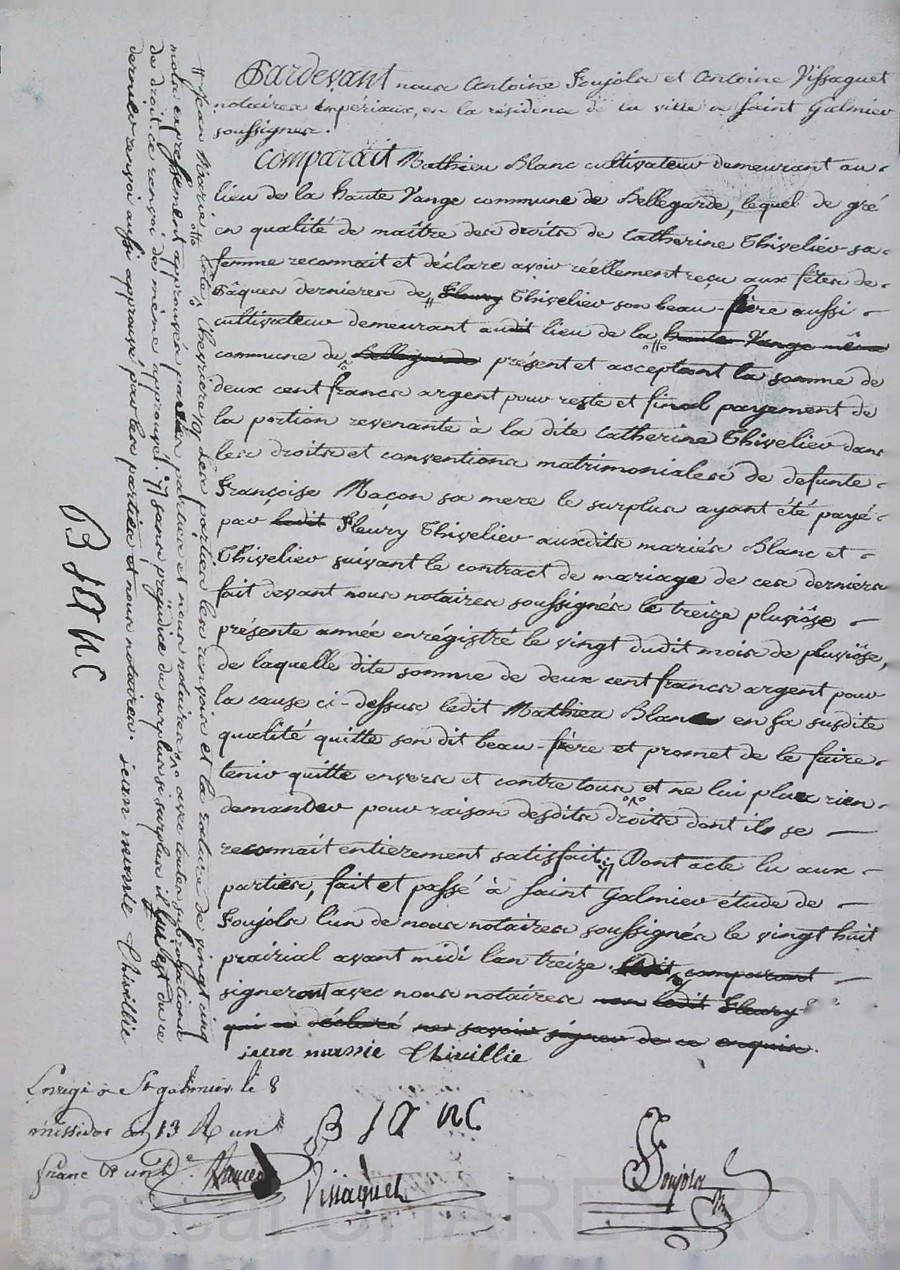 Pardevant nous Antoine Soujols et Antoine Vissaguet
notaires Impériaux, en la résidence de la ville de Saint Galmier
soussignés.
Comparait Mathieu Blanc cultivateur demeurant au
lieu de la haute Vange commune de Bellegarde, lequel de gré
en qualité de maître des droits de Catherine Thivelier sa
femme reconnait et déclare avoir réellement reçu aux fêtes de
Pâques dernieres de Fleury Thivelier son beau-frère aussi
cultivateur demeurant audit lieu de la haute Vange même
commune de Bellegarde présent et acceptant la somme de
deux cent francs argent pour reste et final payement de
la portion revenante à la dite Catherine Thivelier dans
les droits et conventions matrimoniales de defunte
Françoise Maçon sa mere le surplus ayant été payé
par ledit Fleury Thivelier auxdits mariés Blanc et
Thivelier suivant le contract de mariage de ces derniers
fait devant nous notaires soussignés le treize pluviôse
présente année enrégistré le vingt dudit mois de pluviôse,
de laquelle dite somme de deux cent francs argent pour
la cause ci-dessus ledit Mathieu Blanc en sa susdite
qualité quitte son dit beau-frère et promet de le faire
tenir quitte envers et contre tous et ne lui plus rien
demander pour raison desdits droits dont il se
reconnait entierement satisfait; Dont acte lu aux
parties, fait et passé à Saint Galmier étude de
Soujols l'un de nous notaires soussignés le vingt huit
prairial avant midi l'an treize comparant
signeront avec nous notaires non ledit Fleury
qui a déclaré ne savoir signer de ce enquis.
jean marie Thivillie
Blanc
Vissaguet
Soujols
Enregé à St galmier le 8
messidor an 13 R un
franc
jean Marie Chevrieres les parties les renvois et la rature de vingt cinq
mots expressément approuvés par les parties et nous notaires avec toutes subrogations
de droit ce renvoi de même approuvé. sans préjudice du surplus si surplus il lui est du ce
dernier renvoi aussi approuvé par les parties et nous notaires. jean marie Thivillie
Blanc
Pascal CHARETRON